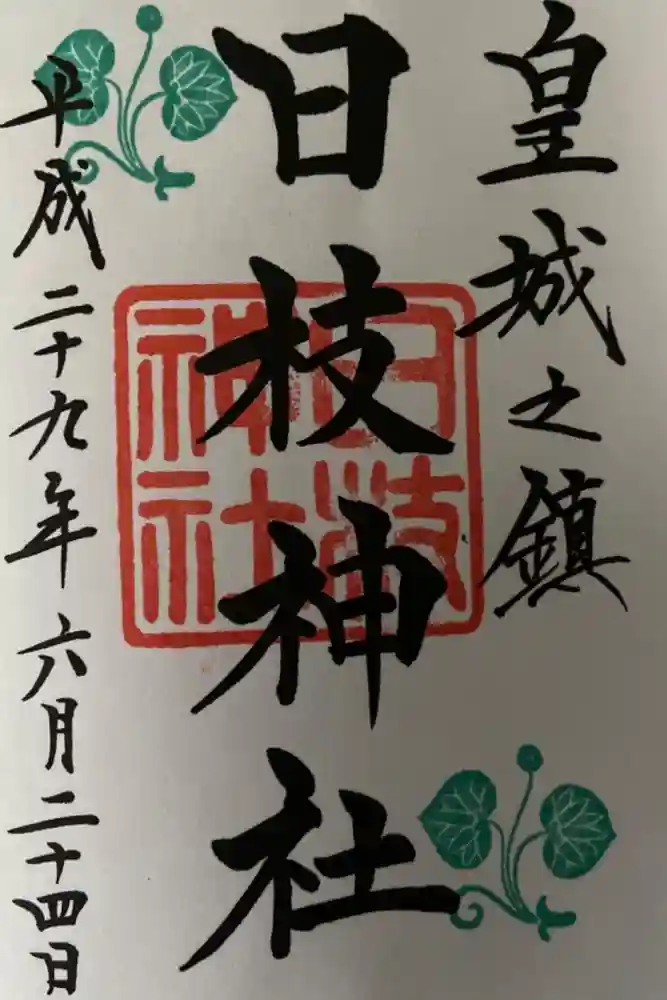 皇城之鎮
日枝神社
日枝神社
平成二十九年六月二十四日